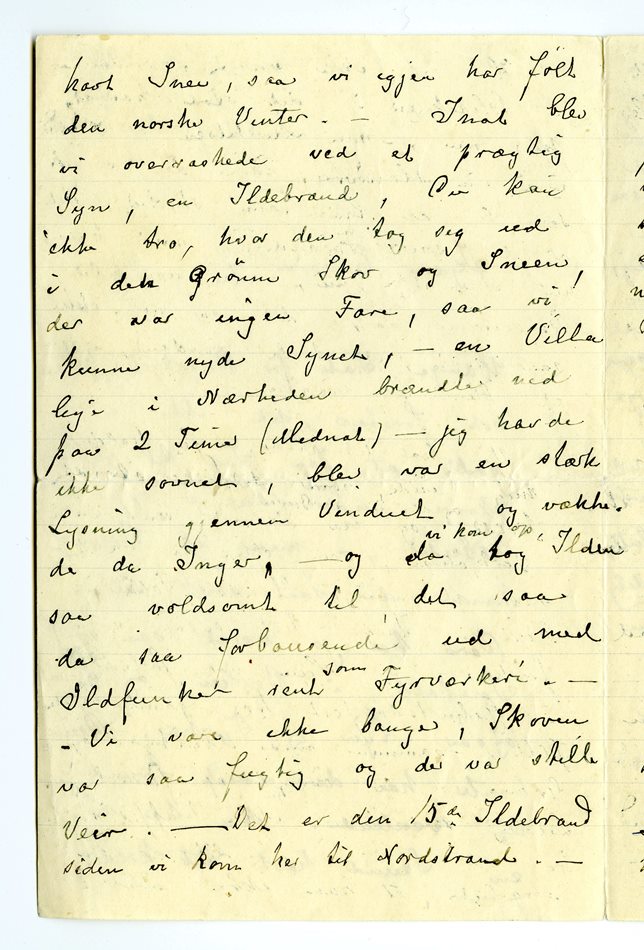 havt Snee, saa vi igjen har følt
den norske Vinter. — Inat blev
vi overraskede ved et prægtig
Syn, en Ildebrand, Du kan
ikke tro, hvor den tog seg ud
i den Grønne Skov og Sneen,
der var ingen Fare, saa vi
kunne nyde Synet, — en Villa
lige i Nærheden brændte ned
paa 2 Timer (Midnat) — jeg havde
ikke sovnet, blev var en stærk
Lysning gjennem Vinduet og vække-
de da Inger, — og da vi kom op, tog Ilden
saa voldsomt til, det saa
da saa forbausende ud med
Ildfunker rent som Fyrværkeri. —
- Vi vare ikke bange, Skoven
var saa fugtig og der var stille
Veir. — Det er den 15de Ildebrand
siden vi kom her til Nordstrand. —